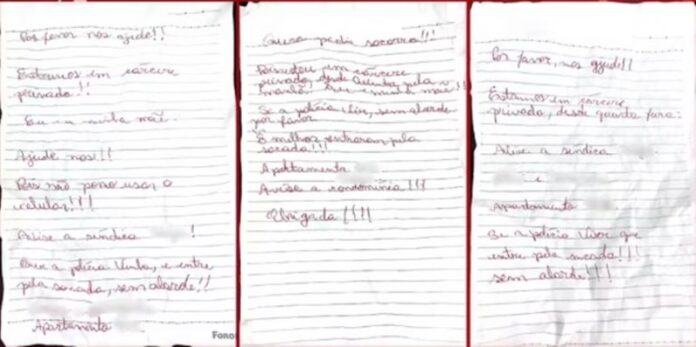 Por favor nos ajude!!
Estamos em cárcere
privado!!
Eu e a minha mãe.
Ajude nos!!
Pois não posso usar o
celular!!!
Avise a síndica !
Que a polícia venha, e entre
pela sacada, sem alarde!!
Apartamento
Quero pedir socorro!!!
Pois estou em cárcere
privado, desde quinta pela
manhã. Eu e minha mãe!!
Se a polícia vier, sem alarde
por favor
É melhor entrarem pela
sacada!!!
Apartamento
Avise a condomínia!!!
Obrigada!!!!
Por favor, nos ajude!!
Estamos em cárcere
privado, desde quinta fera:
Avise a síndica
e
Apartamento
Se a polícia vier que
entre pela sacada!!!
sem alarde!!!